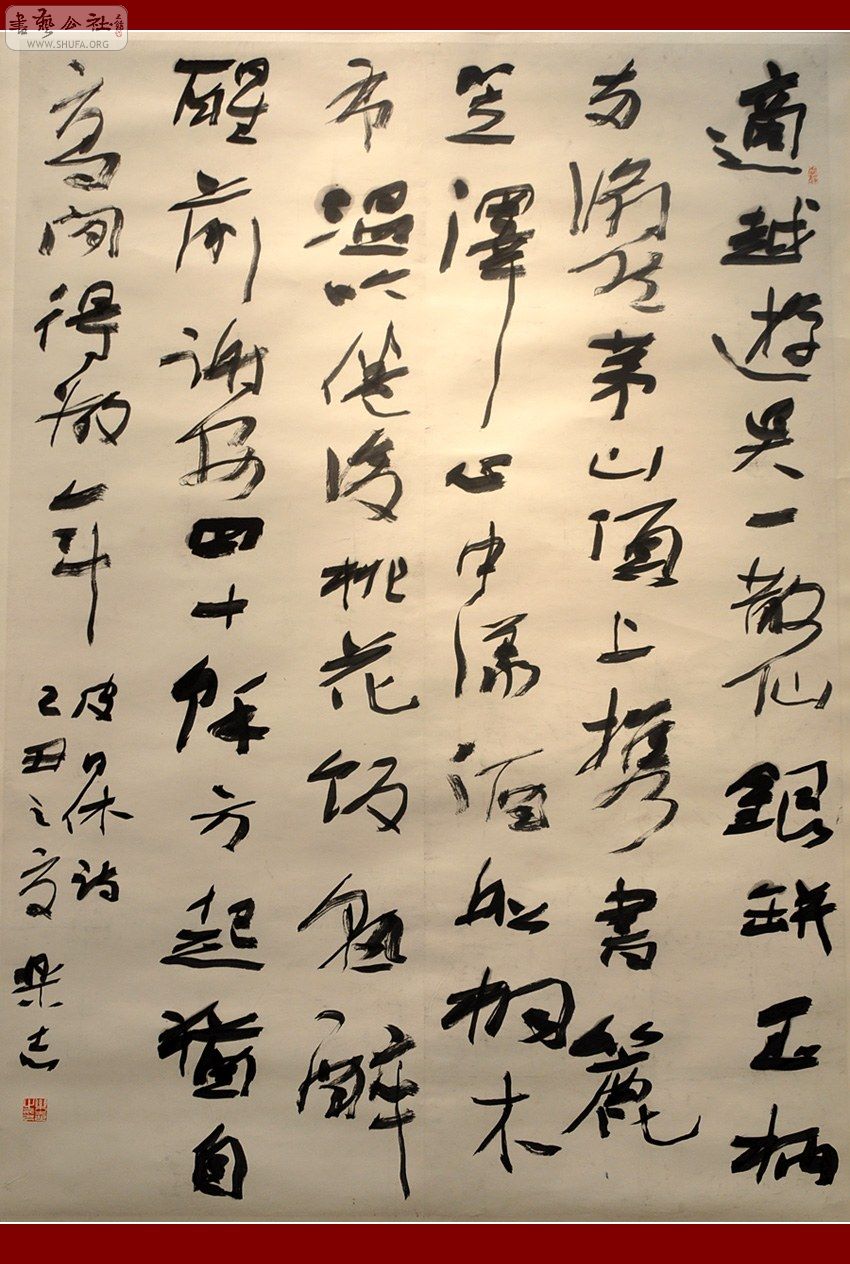 書藝公社
WWW.SHUFA.ORG
適越遊吳一散仙銀缾玉柄
兩翛然茅山頂上攜書簏
笠澤心中漾酒船桐木
布溫吟倦後桃花飯熟醉
醒前謝安四十餘方起猶自
高閒得數年
皮日休詩
己丑之夏 樂志